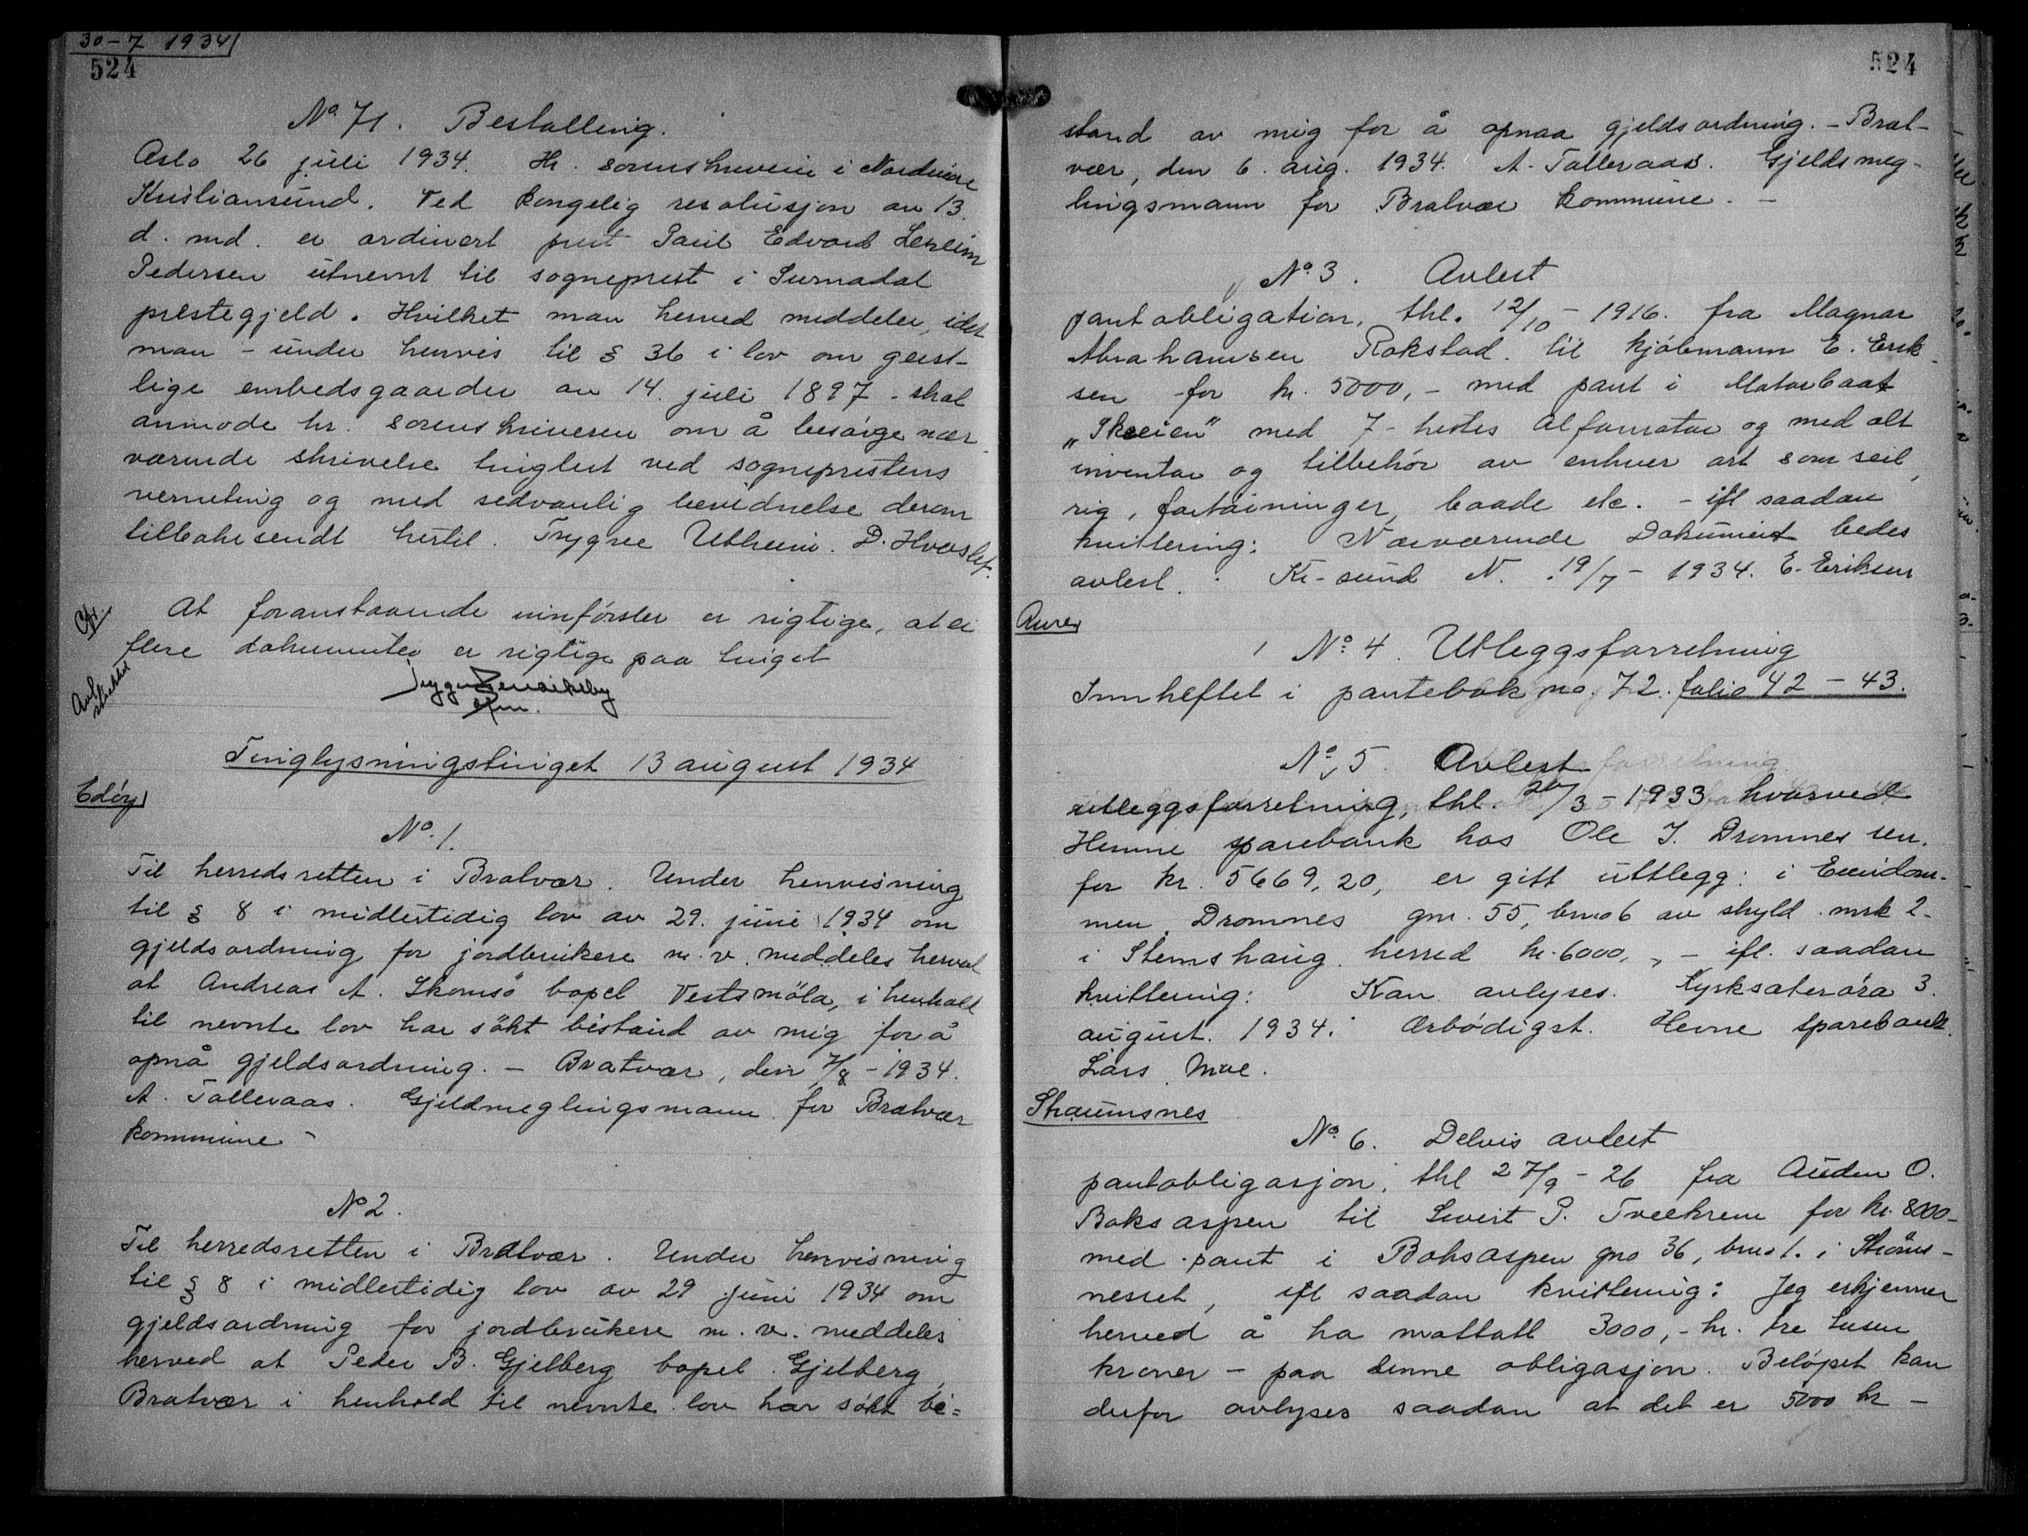 30-7 1934
524
No. 71. Bestalling.
Oslo 26 juli 1934. Hr. sorenskriveren i Nordmøre
Kristiansund. Ved kongelig resolusjon av 13.
d. md. er ordinert prest Paul Edvard
Pedersen utnevnt til sogneprest i Surnadal
prestegjeld. Hvilket man herved meddeler, idet
man - under henvis til § 36 i lov om geist-
lige embedsgaarder av 14. juli 1897 - skal
anmode hr. sorenskriveren om å besørge nær
værende skrivelse tinglest ved sogneprestens
verneting og med sedvanlig bevidnelse derom
tilbakesendt hertil. Trygve Utheim. D. Hvoslef.
At foranstaaende innførsler er rigtige, at ei
flere dokumenter er rigtige paa tinget
Tinglysningstinget 13 august 1934
Edøy
No. 1.
Til herredsretten i Bratvær. Under henvisning
til § 8 i midlertidig lov av 29. juni 1934 om
gjeldsordning for jordbrukere m. v. meddeles herved
at Andreas A. Skomsø bopel Vestsmøla, i henhold
til nevnte lov har søkt bistand av mig for å
opnå gjeldsordning. - Bratvær, den 7/8 - 1934.
A. Talleraas. Gjeldmeglingsmann for Bratvær
kommune -
No 2.
Til herredsretten i Bratvær. Under henvisning
til § 8 i midlertidig lov av 29 juni 1934 om
gjeldsordning for jordbrukere m. v. meddeles
herved at Peder B. Gjelberg bopel Gjelberg,
Bratvær i henhold til nevnte lov har søkt bi=
524
stand av mig for å opnaa gjeldsordning. - Brat-
vær, den 6. aug. 1934. A. Talleraas. Gjeldsmeg-
lingsmann for Bratvær kommune. -
No. 3. Avlest
pantobligation, thl. 12/10 - 1916. fra Magnar
Abrahamsen Rokstad til kjøbmann E. Erik-
sen for kr. 5000,- med pant i Motorbaat
„Skreien" med 7-hestes Alfamotor og med alt
inventar og tilbehør av enhver art som seil,
rig, fortøininger, baade etc. - ifl saadan
kvittering: Nærværende Dokument bedes
avlest. Kr-sund N. 19/7 - 1934. E. Eriksen
Aure
No. 4. Utleggsforretning
Innheftet i pantebok no. 72. folio 42 - 43.
No. 5. Avlest
utleggsforretning, thl. 20/3 - 1933 hvorved
Hemne sparebank hos Ole J. Dromnes sen.
for kr. 5669,20, er gitt uttlegg: i Eiendom-
men Dromnes gnr. 55, bno 6 av skyld mrk 2-
i Stemshaug herred kr. 6000,- - ifl. saadan
kvittering: Kan avlyses. Kyrksæterøra 3.
august. 1934. Ærbødigst. Hevne sparebank.
Lars Moe.
Straumsnes
No. 6. Delvis avlest
pantobligasjon, thl 27/9 - 26 fra Auden O.
Boksaspen til Sivert P. Tveekrem for kr. 8000-
med pant i Boksaspen gno 36, bno 1. i Strøms-
nesset, ifl saadan kvittering: Jeg erkjenner
herved å ha mottatt 3000,- kr. tre tusen
kroner - paa denne obligasjon. Beløpet kan
derfor avlyses saadan at det er 5000 kr -